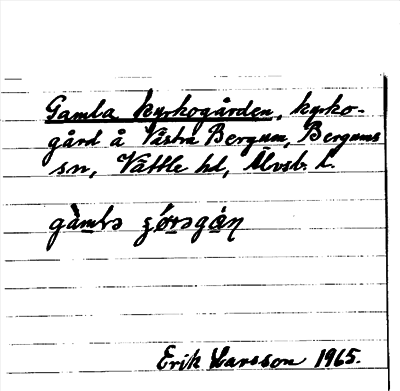 Gamla kyrkogården, kyrko-
gård å Västra Bergum, Bergums
sn, Vättle hd, Älvsb. l.
Erik Larsson 1965.